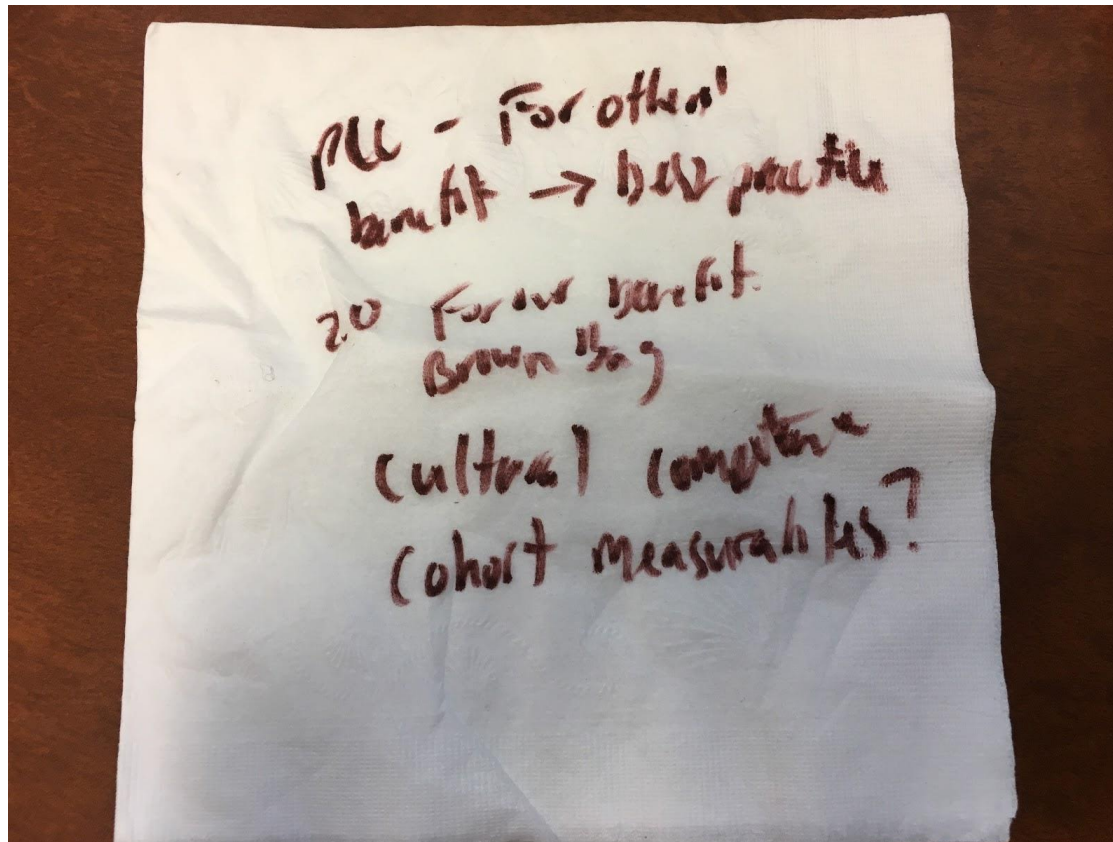 PLC - For others'
benefit → best practice
20 For our benefit.
Brown Bag
Cultural Competence
Cohort measurables?